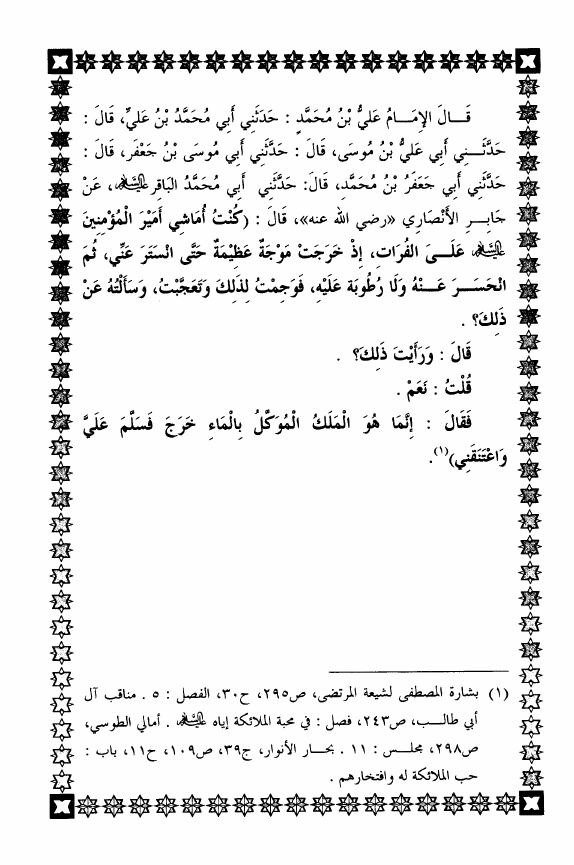 قَـالَ الإِمَـامُ عَلِيُّ بْنُ مُحَمَّدٍ : حَدَثَنِي أَبِي مُحَمَّدُ بْنُ عَلِيٍّ، قَالَ :
حَدَّثَـنِي أَبِي عَلِيُّ بْنُ مُوسَى، قَالَ : حَدَّثَنِي أَبِي مُوسَى بْنُ جَعْفَر، قَالَ :
حَدَّثَنِي أَبِي جَعَفَرُ بْنُ مُحَمَّدِ، قَالَ: حَدَّثَنِي أَبِي مُحَمَّدُ البَاقِرِ عليه السلام، عَنْ
جَابِـرِ الأَنْصَارِي «رضي الله عنه»، قَالَ : (كُنْتُ أُمَاشِي أَمَيْرَ الْمُؤْمِنِينَ
عليه السلام عَلَـى الفُرَاتِ، إِذْ خَرَجَتْ مَوْجَةٌ عَظِيْمَةٌ حَتَّى انْسَتَرَ عَنِّي، ثُمَ
انْحَسَـرَ عَـنْهُ وَلَا رُطُوبَة عَلَيْهِ، فَوَجِمْتُ لِذَلِكَ وَتَعَجَّبْتُ، وَسَأَلْتُهُ عَنْ
ذَلِكَ؟ .
قَالَ : وَرَأَيْتَ ذَلِكَ؟ .
قُلْتُ : نَعَمْ .
فَقَالَ : إِنَّمَا هُوَ الْمَلَكُ الْمُوَكَّلُ بِالْمَاءِ خَرَجَ فَسَلَّمَ عَلَيَّ
وَاعْتَنَقَنِي)(١).
(١) بشارة المصطفى لشيعة المرتضى، ص٢٩٥، ح٣٠، الفصل : ٥ . مناقب آل
أبي طالـب، ص٢٤٣، فصل : في محبة الملائكة إياه عليه السلام . أمالي الطوسي،
ص٢٩٨، مجلس : ١١ . بحـار الأنوار، ج٣٩، ص١٠٩، ح١١، باب :
حب الملائكة له وافتخارهم .